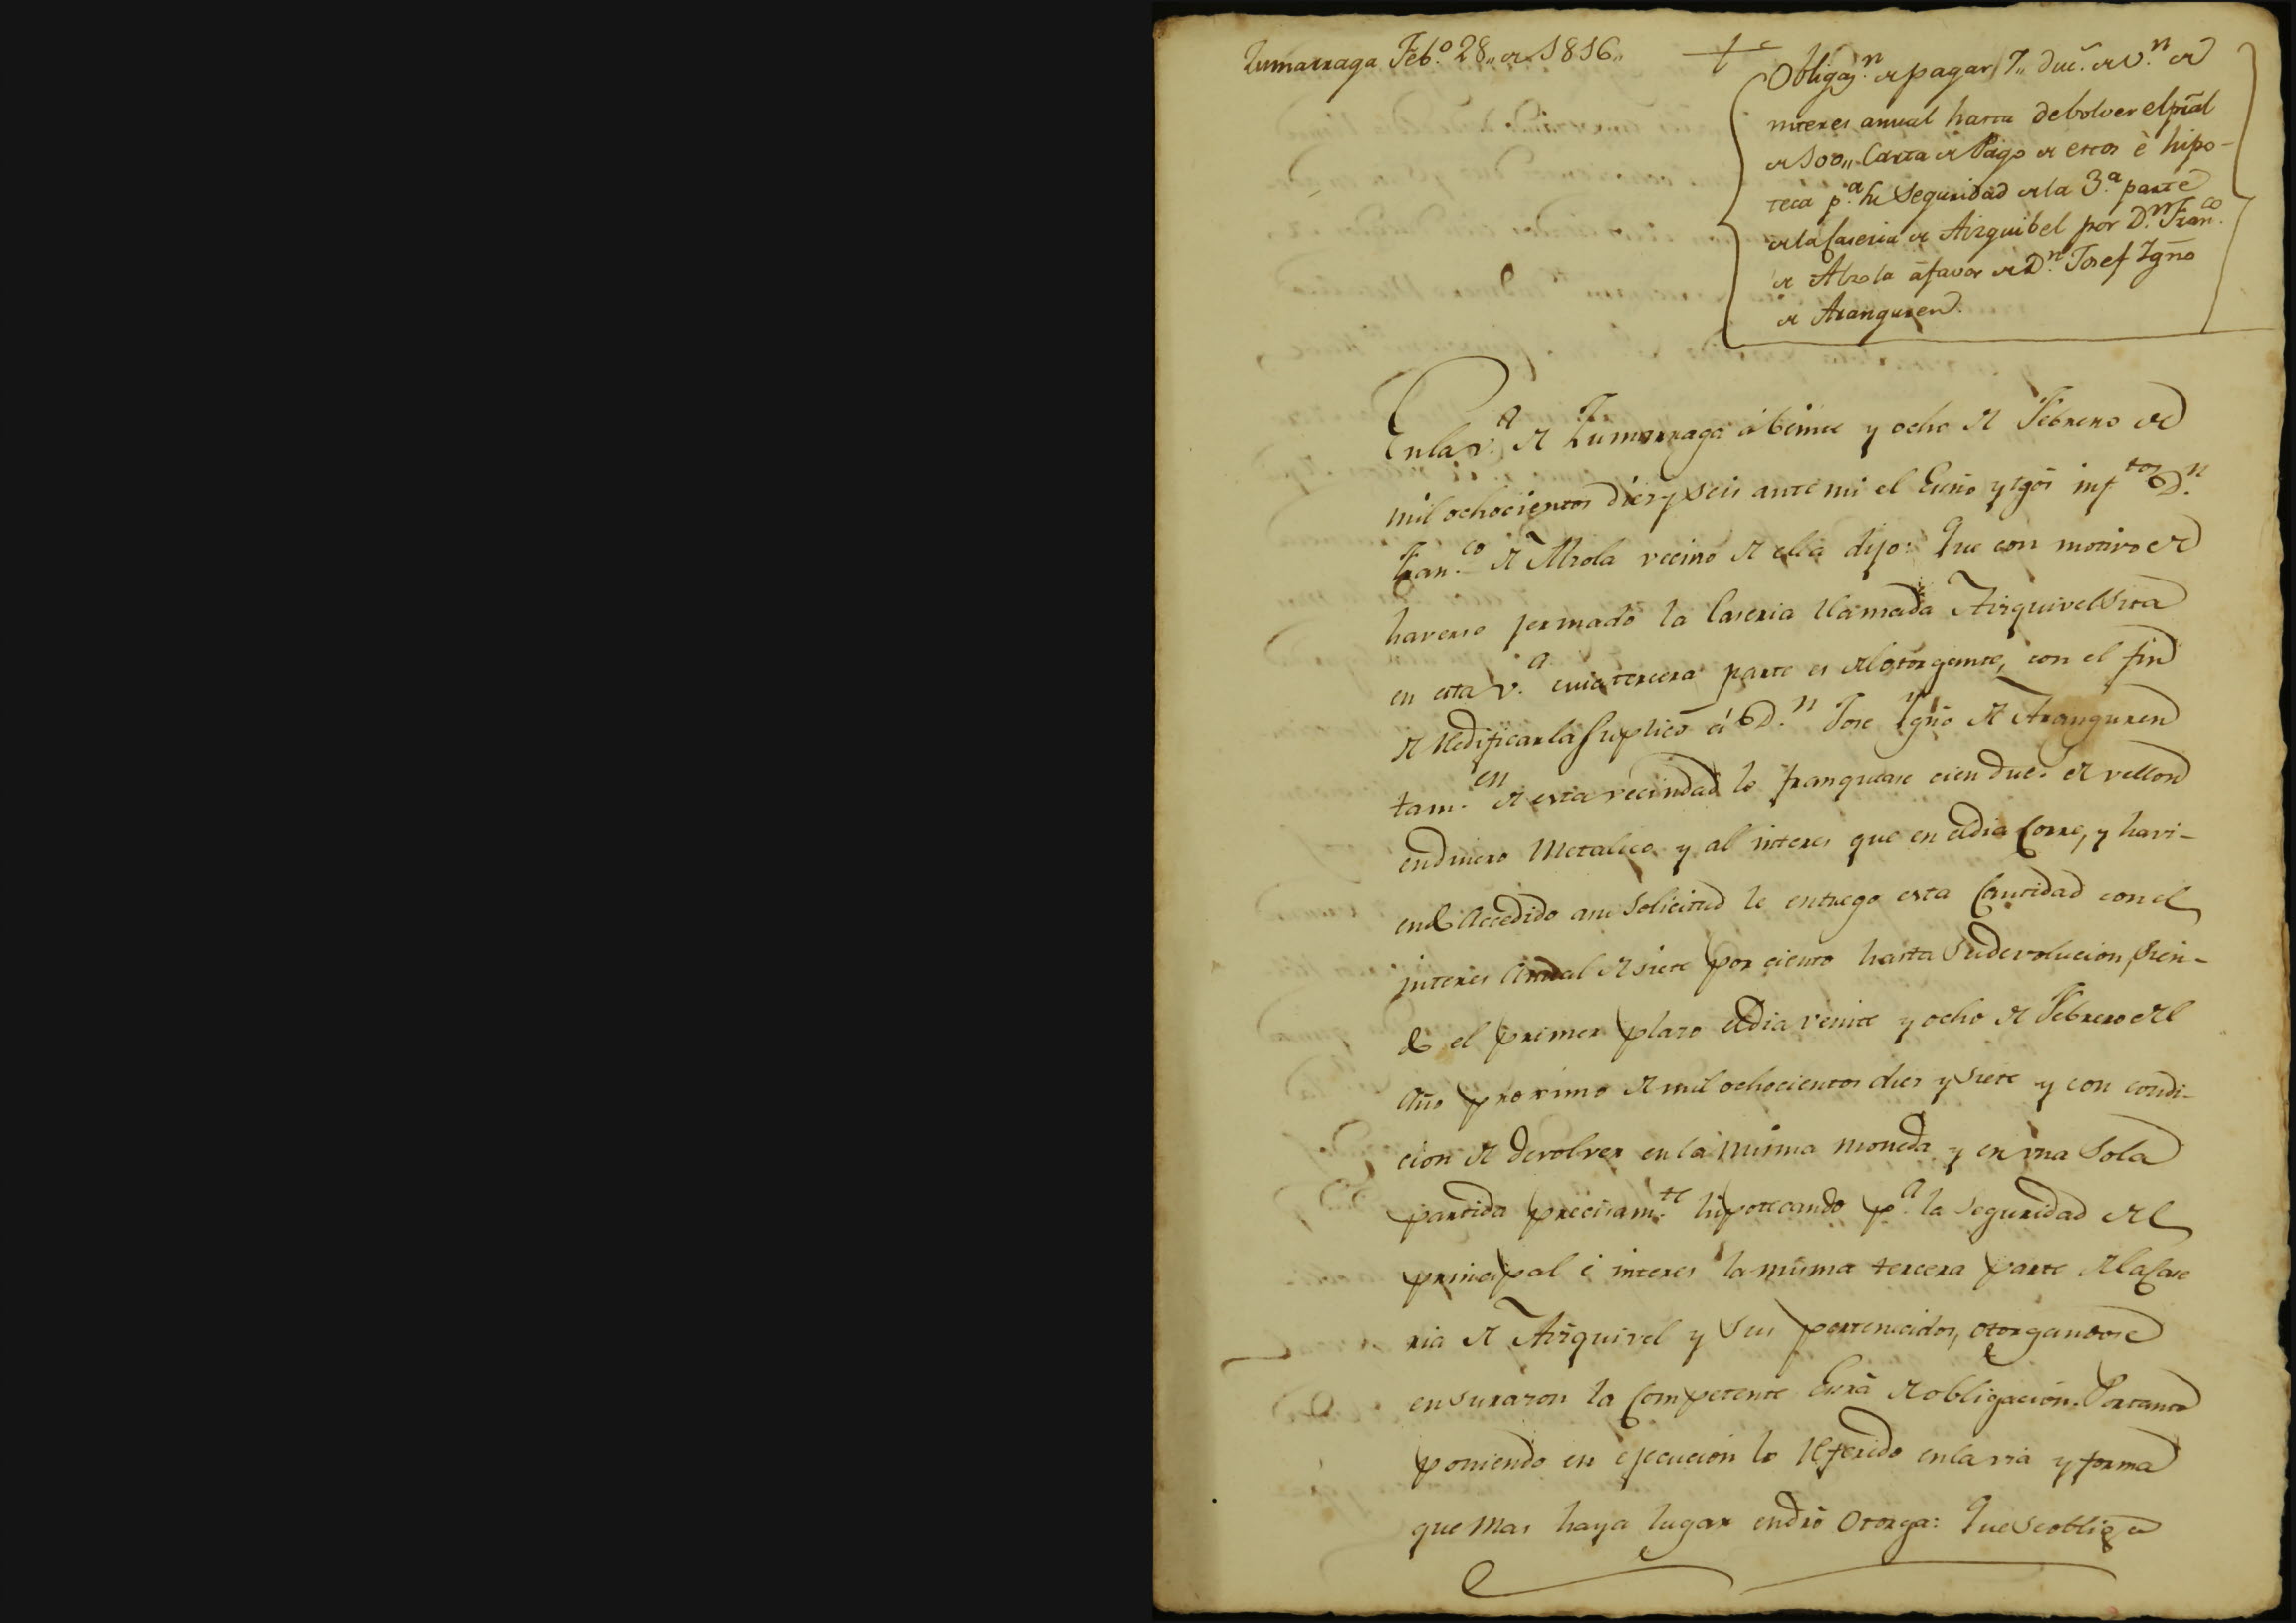 Zumarraga Feb.º 28,, de 1816,,
Obligaz.n de pagar 7,, duc.s de v.n de
interes anual hasta debolver el prãl
de 100,, Carta de Pago de estos è hipo-
teca p.a su seguridad de la 3.a parte
de la Caseria de Aizquibel por D.n Fran.co
de Alzola á favor de D.n Josef Ygñó
de Aranguren.
En la v.a de Zumarraga á beinte y ocho de Febrero de
mil ochocientos diez y seis ante mi el Esño y tgõs inf.tos D.n
Fran.co de Alzola vecino de ella dijo: Que con motivo de
haverse la Caseria llamada Aizquivel sita
en esta v.a cuia tercera parte es del otorgante, con el fin
de Redificarla suplicó á D.n Jose Ygñó de Aranguren
tam.en de esta vecindad le franquease cien duc.s de vellon
en dinero Metalico y al interes que en el dia Corre, y havi-
endo Accedido a su Solicitud le entrego esta Cantidad con el
interes Anual de siete por ciento hasta su devolucion, sien-
do el primer plazo el dia veinte y ocho de Febrero del
Año proximo de mil ochocientos diez y siete y con condi-
cion de devolver en la misma moneda y en una Sola
partida precisam.te hipotecando p.a la seguridad del
principal é interes la misma tercera parte de la Case
ria de Aizquivel y sus pertenecidos, otorgandose
en su razon la Competente Esrã de obligacion. Por tanto
poniendo en ejecucion lo Referido en la via y forma
que Mas haya lugar en dró Otorga: Que se obliga